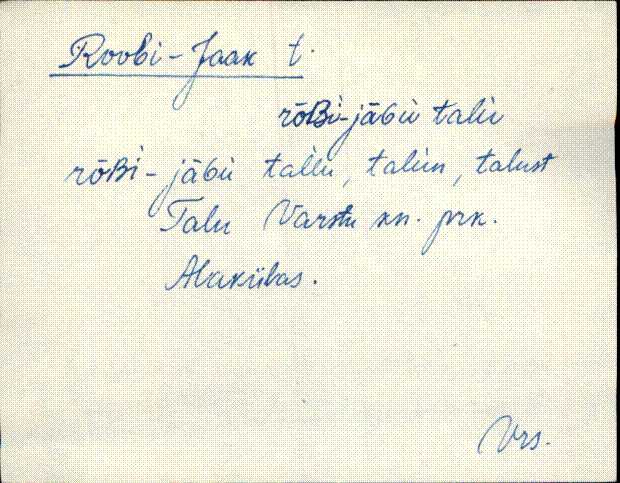 Roobi-Jaak t.
rōBi-jāGu talu
rōBi-jāGu tallu, talun, talust
Talu Varstu kn. prk.
Alakülas.
Vrs.